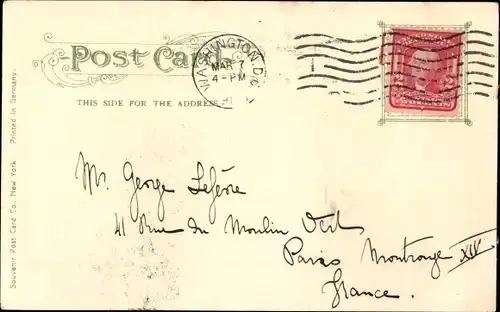 Post Card
WASHINGTON, D.C.
MAR 7
4-PM
THIS SIDE FOR THE ADDRESS
Mr. George Lefèvre
41 Rue du Moulin Vert
Paris Montrouge XIV
France.
Souvenir Post Card Co. New York. Printed in Germany.